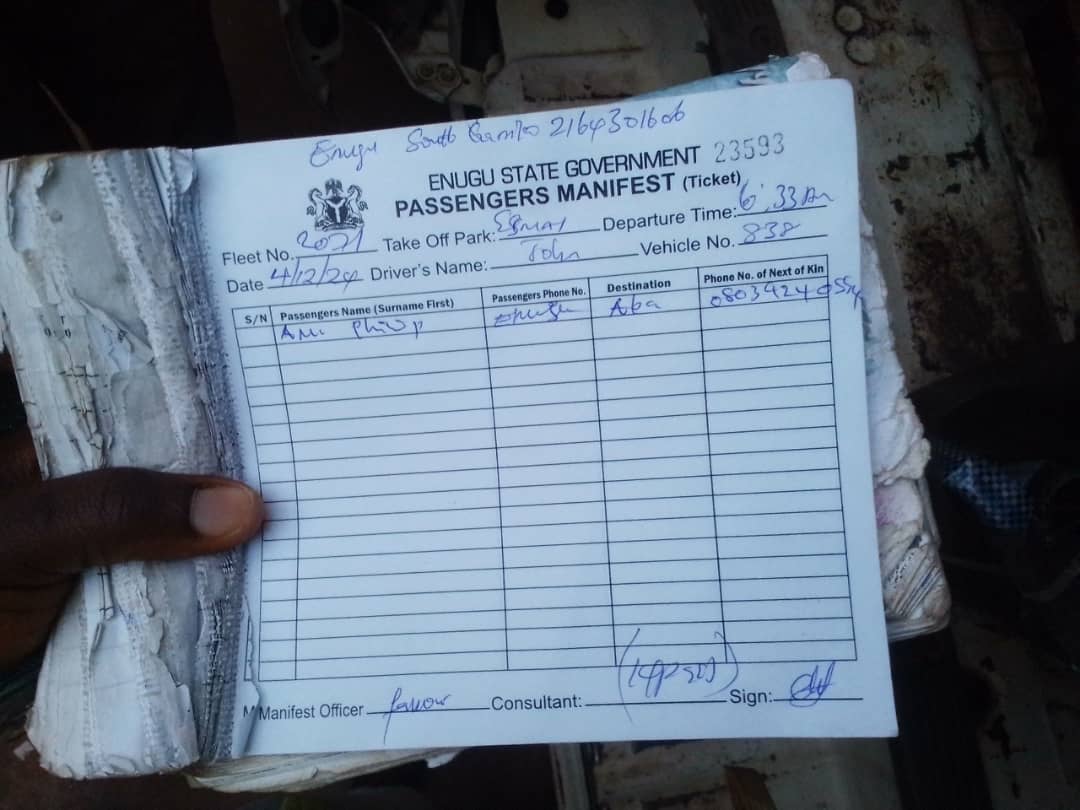 Enugu South 2164301606
ENUGU STATE GOVERNMENT 23593
PASSENGERS MANIFEST (Ticket)
Fleet No. 2071 Take Off Park: Departure Time: 6:33am
Date 4/12/24 Driver's Name: John Vehicle No. 838
S/N Passengers Name (Surname First) Passengers Phone No. Destination Phone No. of Next of Kin
Ani Philip Enugu Aba
Manifest Officer favour Consultant: Sign: